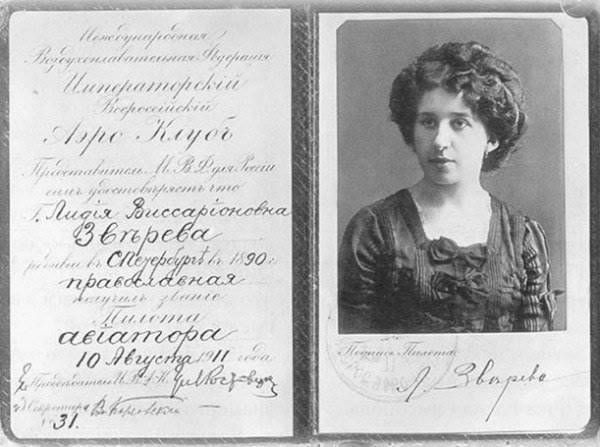 Международная
Воздухоплавательная Федерація
Императорскій
Всероссійскій
Аэро Клубъ
Представитель М. В. Ф. для Россіи
симъ удостовѣряетъ что
Г. Лидія Виссаріоновна
Звѣрева
родивш въ С.Петербургѣ въ 1890 г.
православная
получилъ званіе
Пилота
авіатора
10 Августа 1911 года
Председатель
Секретарь
31.
Подпись Пилота
Л. Звѣрева